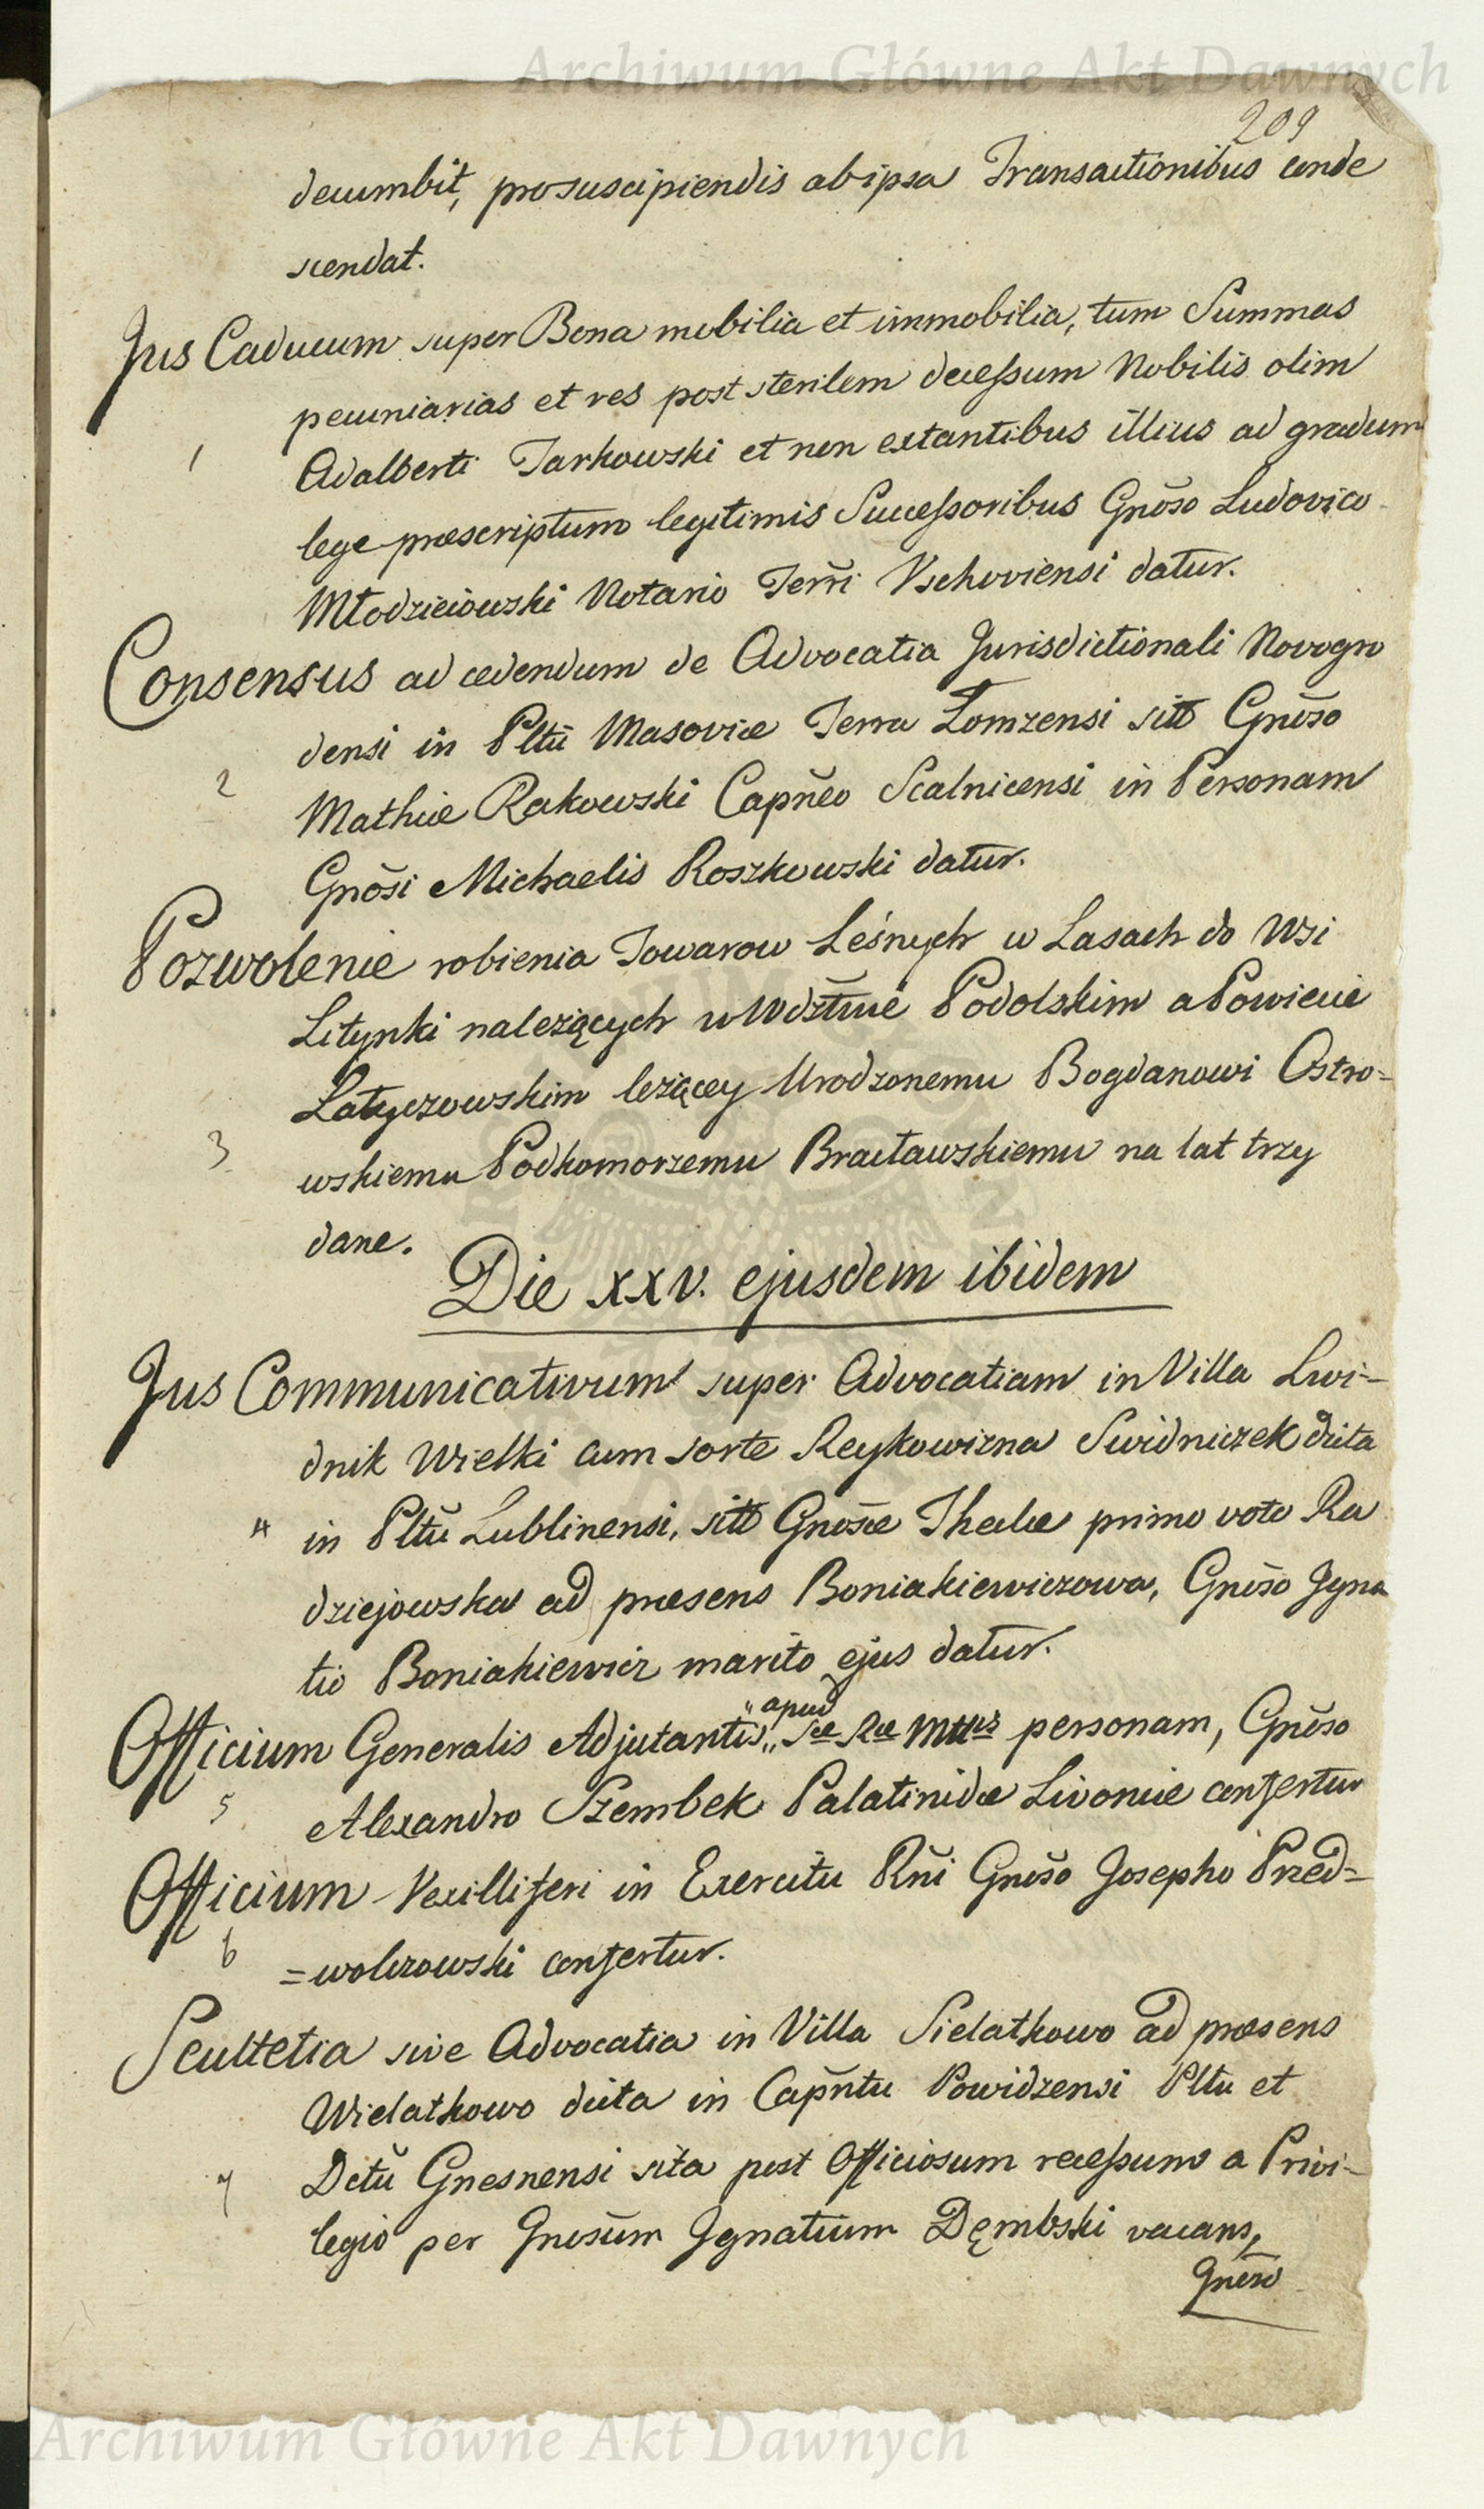 Archiwum Główne Akt Dawnych
209
decumbit, pro suscipiendis ab ipsa Transactionibus conde
scendat.
Jus Caducum super Bona mobilia et immobilia, tum Summas
pecuniarias et res post sterilem decessum Nobilis olim
1
Adalberti Tarkowski et non extantibus illius ad gradum
lege præscriptum legitimis Successoribus Gnõso Ludovico
Młodzieiowski Notario Terri Vschoviensi datur.
Consensus ad cedendum de Advocatia Jurisdictionali Novogro
densi in Pltũ Masoviæ Terra Łomzensi sitt Gnõso
2
Mathiæ Rakowski Capñeo Scalnicensi in Personam
Gnõsi Michaelis Roszkowski datur.
Pozwolenie robienia Towarow Leśnych w Lasach do Wsi
Litynki należących w Wdztwie Podolskim a Powiecie
Latyczowskim leżącey Urodzonemu Bogdanowi Ostro=
3
wskiemu Podkomorzemu Bracławskiemu na lat trzy
dane.
Die xxv. ejusdem ibidem
Jus Communicativum super Advocatiam in Villa Swi-
dnik Wielki cum sorte Reykowizna Swidniczek dicta
4
in Pltũ Lublinensi, sitt Gnosæ Theclæ primo voto Ra
dziejowska ad præsens Boniakiewiczowa, Gnõso Igna
tio Boniakiewicz marito ejus datur.
apud
Officium Generalis Adjutantis Sæ Ræ Mttis personam, Gnõso
5
Alexandro Szembek Palatinidæ Livoniæ confertur
Officium Vexilliferi in Exercitu Rñi Gnõso Josepho Przed=
6
=wolszowski confertur.
Scultetia sive Advocatia in Villa Sielatkowo ad præsens
Wielatkowo dicta in Capñtu Powidzensi Pltu et
7
Dctũ Gnesnensi sita post Officiosum recessum a Privi-
legio per Gnosũm Ignatium Dęmbski vacans,
Gnõso
Archiwum Główne Akt Dawnych